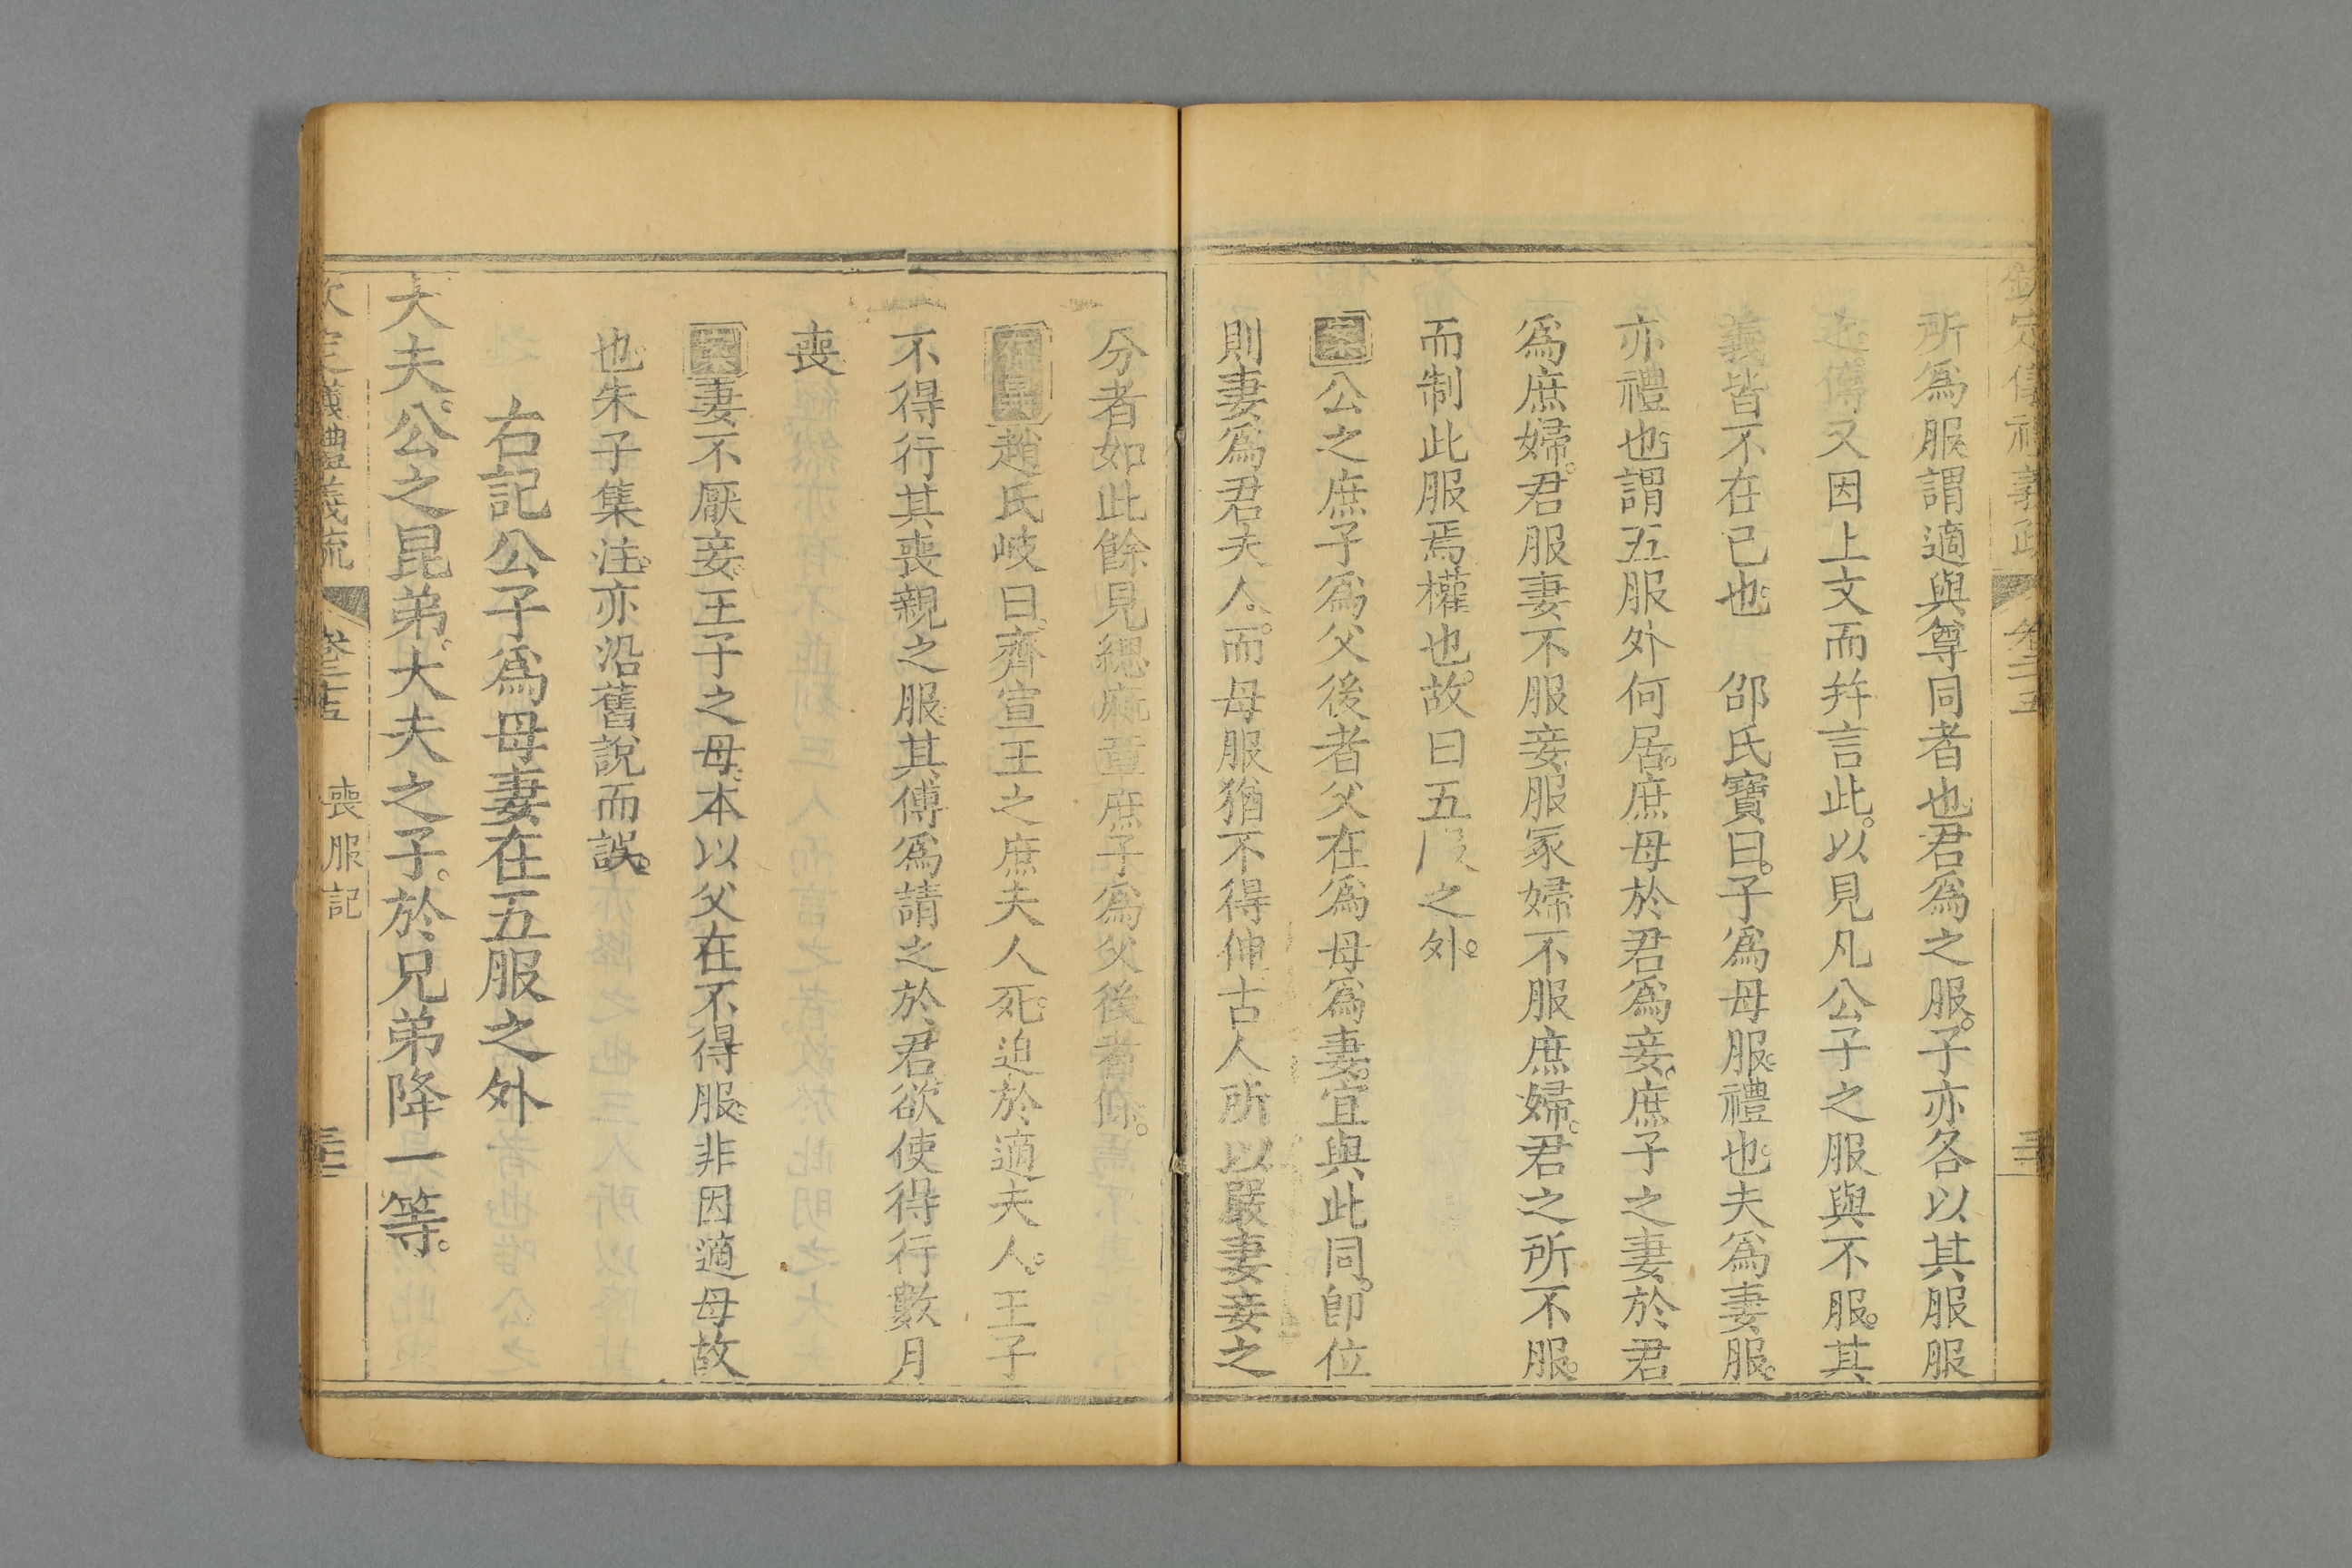 欽定儀禮義疏 卷二十五
所爲服謂適與尊同者也君爲之服。子亦各以其服服
之傳又因上文而幷言此。以見凡公子之服與不服。其
義皆不在已也 邵氏寶曰。子爲母服。禮也。夫爲妻服。
亦禮也。謂五服外何居。庶母於君爲妾。庶子之妻於君
爲庶婦。君服妻不服妾服冢婦不服庶婦。君之所不服。
而制此服焉權也。故曰五服之外。
案公之庶子爲父後者父在爲母爲妻。宜與此同。卽位
則妻爲君夫人。而母服猶不得伸古人所以嚴妻妾之
分者如此餘見緦麻章庶子爲父後者條。
存異趙氏岐曰。齊宣王之庶夫人死。迫於適夫人。王子
不得行其喪親之服。其傅爲請之於君欲使得行數月
喪
案妻不厭妾。王子之母。本以父在不得服。非因適母故
也朱子集注。亦沿舊說而誤。
右記公子爲母妻在五服之外
大夫。公之昆弟。大夫之子。於兄弟降一等。
欽定儀禮義疏 卷二十五 喪服記